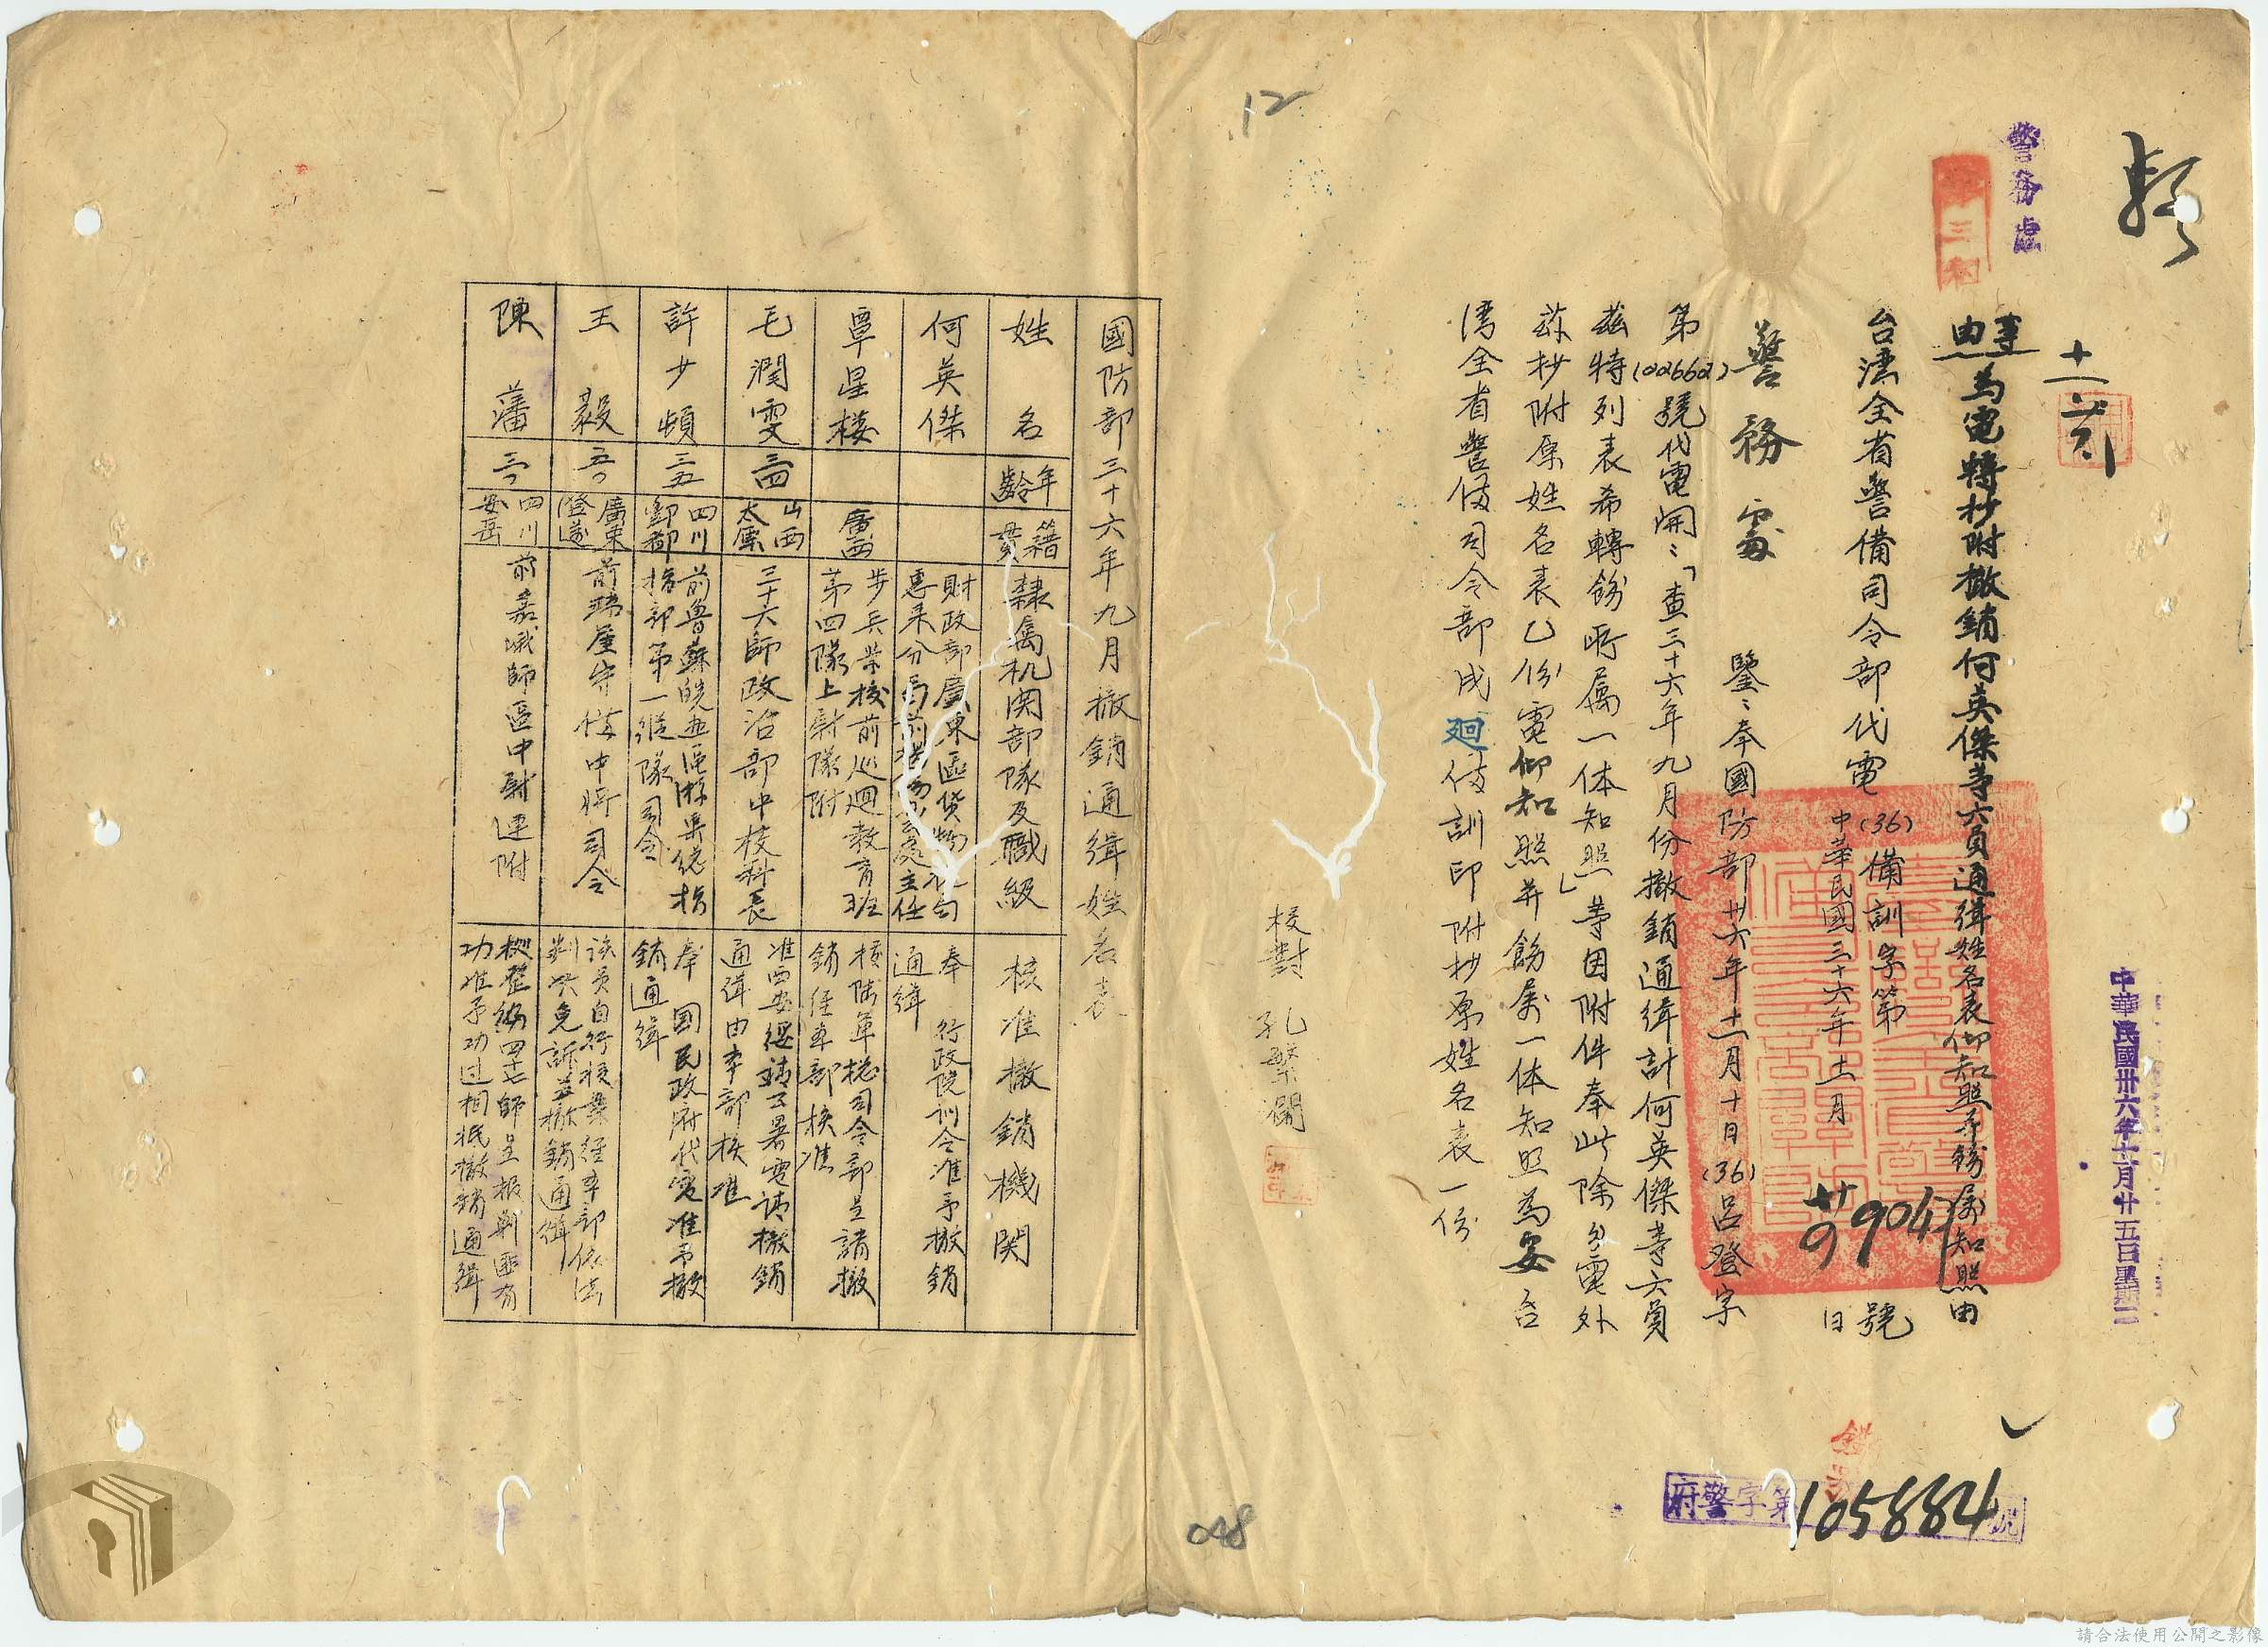 警務處
中華民國卅六年十一月廿五日星期二
事由
為電轉抄附撤銷何英傑等六員通緝姓名表仰知照并飭屬知照由
台灣全省警備司令部代電
(36)備訓字第
9041
號
中華民國三十六年十一月
日
警務處 鑒：奉國防部卅六年十一月十日(36)呂登字
第(026662)號代電開：「查三十六年九月份撤銷通緝計何英傑等六員
茲特列表希轉飭所屬一体知照」等因附件奉此除分電外
茲抄附原姓名表乙份電仰知照并飭屬一体知照為要台
湾全省警俻司令部戌廻俻訓印附抄原姓名表一份
校對 孔繁瀾
12
府警字第105884號
048
國防部三十六年九月撤銷通緝姓名表
姓名 年齡 籍貫 隸屬机関部隊及職級 核准撤銷機関
何英傑 財政部廣東區貨物稅局惠来分局前港務辦公處主任 奉行政院訓令准予撤銷通緝
覃星樓 廣西 步兵学校前巡廻教育班第四隊上尉隊附 據陸軍總司令部呈請撤銷經本部核准
毛潤雯 三四 山西太原 三十六師政治部中校科長 准西安綏靖公署電請撤銷通緝由本部核准
許少頓 三五 四川酆都 前魯蘇皖邊區游擊總指揮部第一縱隊司令 奉國民政府代電准予撤銷通緝
王毅 五〇 廣東澄邁 前瓊崖守俻中將司令 該員自行投案經本部依法判决免訴并撤銷通緝
陳藩 三〇 四川安岳 前嘉峨師區中尉連附 據整編四十七師呈報剿匪有功准予功过相抵撤銷通緝
請合法使用公開之影像